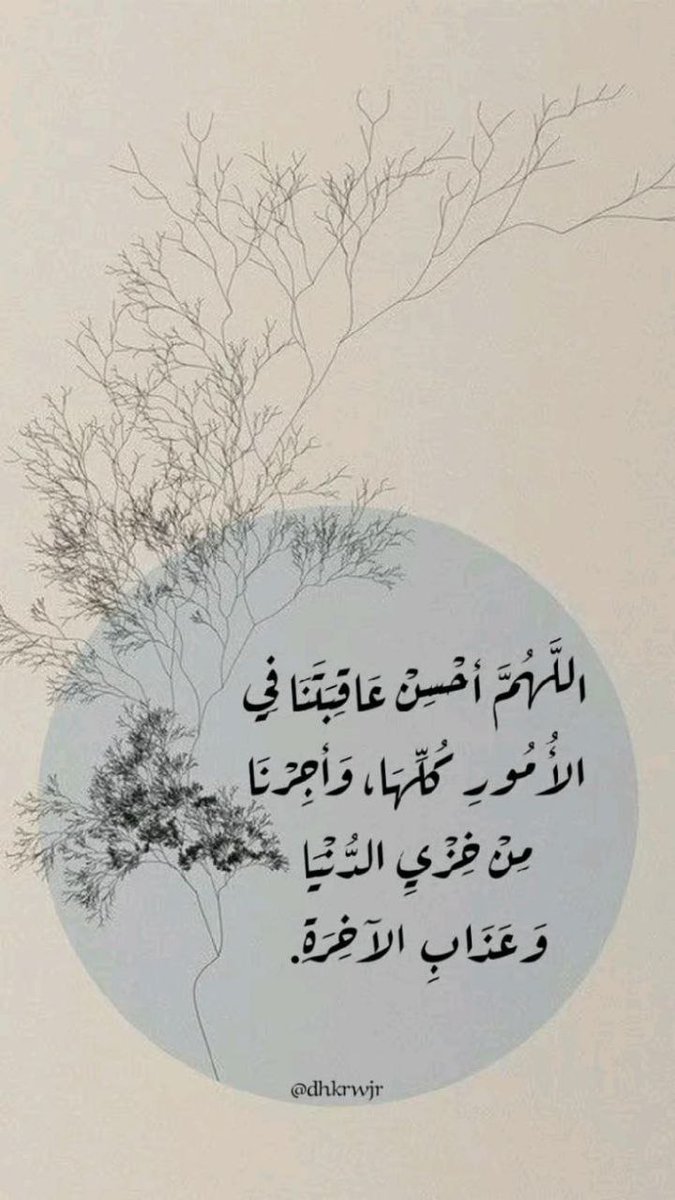 اللَّهُمَّ أحْسِنْ عَاقِبَتَنَا فِي
الأُمُورِ كُلِّهَا، وَأجِرْنَا
مِنْ خِزْيِ الدُّنْيَا
وَعَذَابِ الآخِرَةِ.
@dhkrwjr